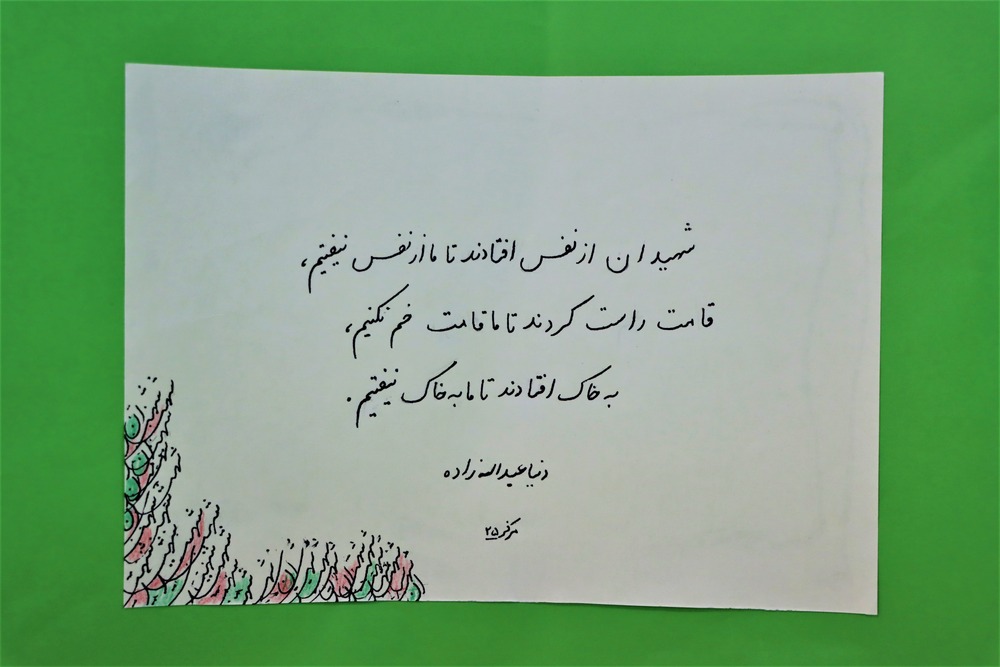 شهیدان از نفس افتادند تا ما از نفس نیفتیم،
قامت راست کردند تا ما قامت خم نکنیم،
به خاک افتادند تا ما به خاک نیفتیم.
دنیا عبداله زاده
مرکز ۲۵